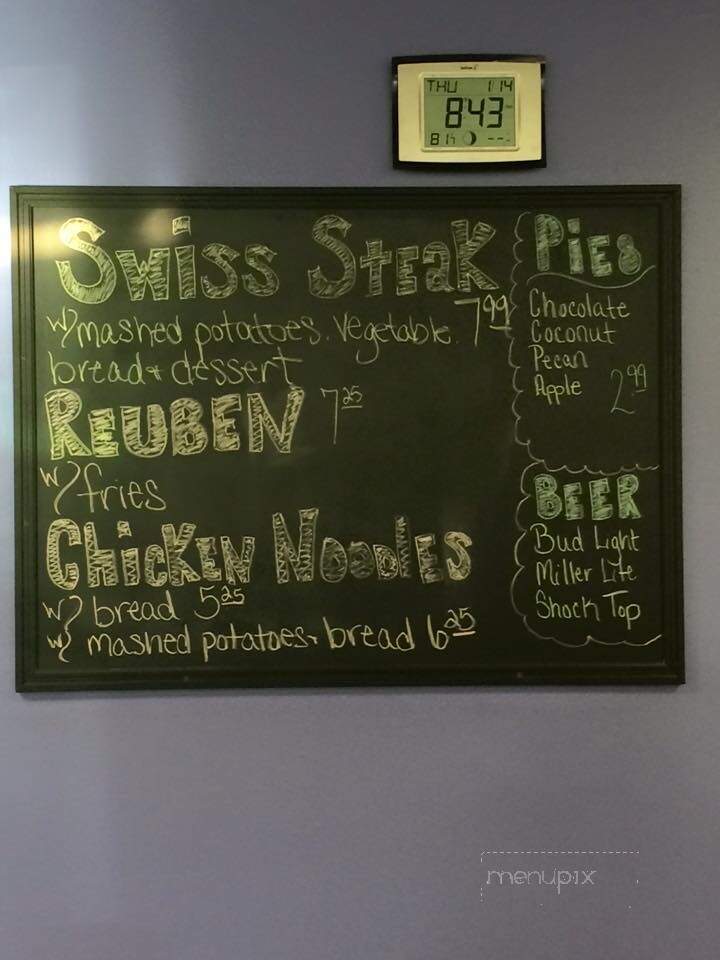 THU 1/14
8:43
Swiss Steak
w/ mashed potatoes. vegetable. 7 99
bread + dessert
REUBEN 7 25
w/ fries
Chicken Noodles
w/ bread 5 25
w/ mashed potatoes + bread 6 25
Pies
Chocolate
Coconut
Pecan
Apple 2 99
BEER
Bud Light
Miller Lite
Shock Top
menupix